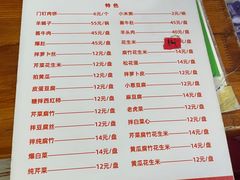 特色
门钉肉饼 6元/个
小米粥 2元/碗
羊蝎子 55元/锅
酱牛肚
酱牛肉 45元/盘
羊头肉 40元/盘
爆肚 45元/盘
花生米
拌萝卜丝 12元/盘
腐竹花生米 14元/盘
芹菜花生米 12元/盘
松花蛋 14元/盘
拍黄瓜 12元/盘
拌萝卜皮 12元/盘
皮蛋豆腐 12元/盘
小葱豆腐 12元/盘
糖拌西红柿 12元/盘
麻豆腐 12元/盘
芹菜腐竹 14元/盘
老虎菜 12元/盘
拌豆腐丝 12元/盘
拌白菜心 12元/盘
拌纯腐竹 14元/盘
黄瓜腐竹 14元/盘
爆白菜 14元/盘
黄瓜腐竹花生米 14元/盘
纯芹菜 12元/盘
黄瓜花生米 12元/盘